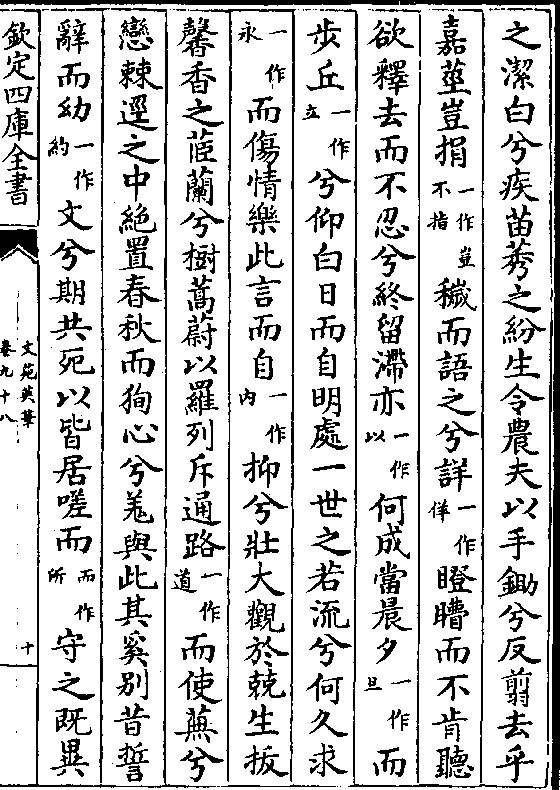 之潔白兮疾苗莠之紛生令農夫以手鋤兮反翦去乎
嘉莖豈捐一作豈不指穢而語之兮詳一作佯瞪矒而不肯聽
欲釋去而不忍兮終留滯亦一作以何成當晨夕一作旦而
步丘一作立兮仰白日而自明處一世之若流兮何久求
一作永而傷情樂此言而自一作內抑兮壯大觀於兢生扳
馨香之茝蘭兮樹蒿蔚以羅列斥通路一作道而使蕪兮
戀棘逕之中絶置春秋而狥心兮羗與此其奚别昔誓
辭而幼一作約文兮期共死以皆居嗟而而作所守之既異
欽定四庫全書
文苑英華
卷九十八
十